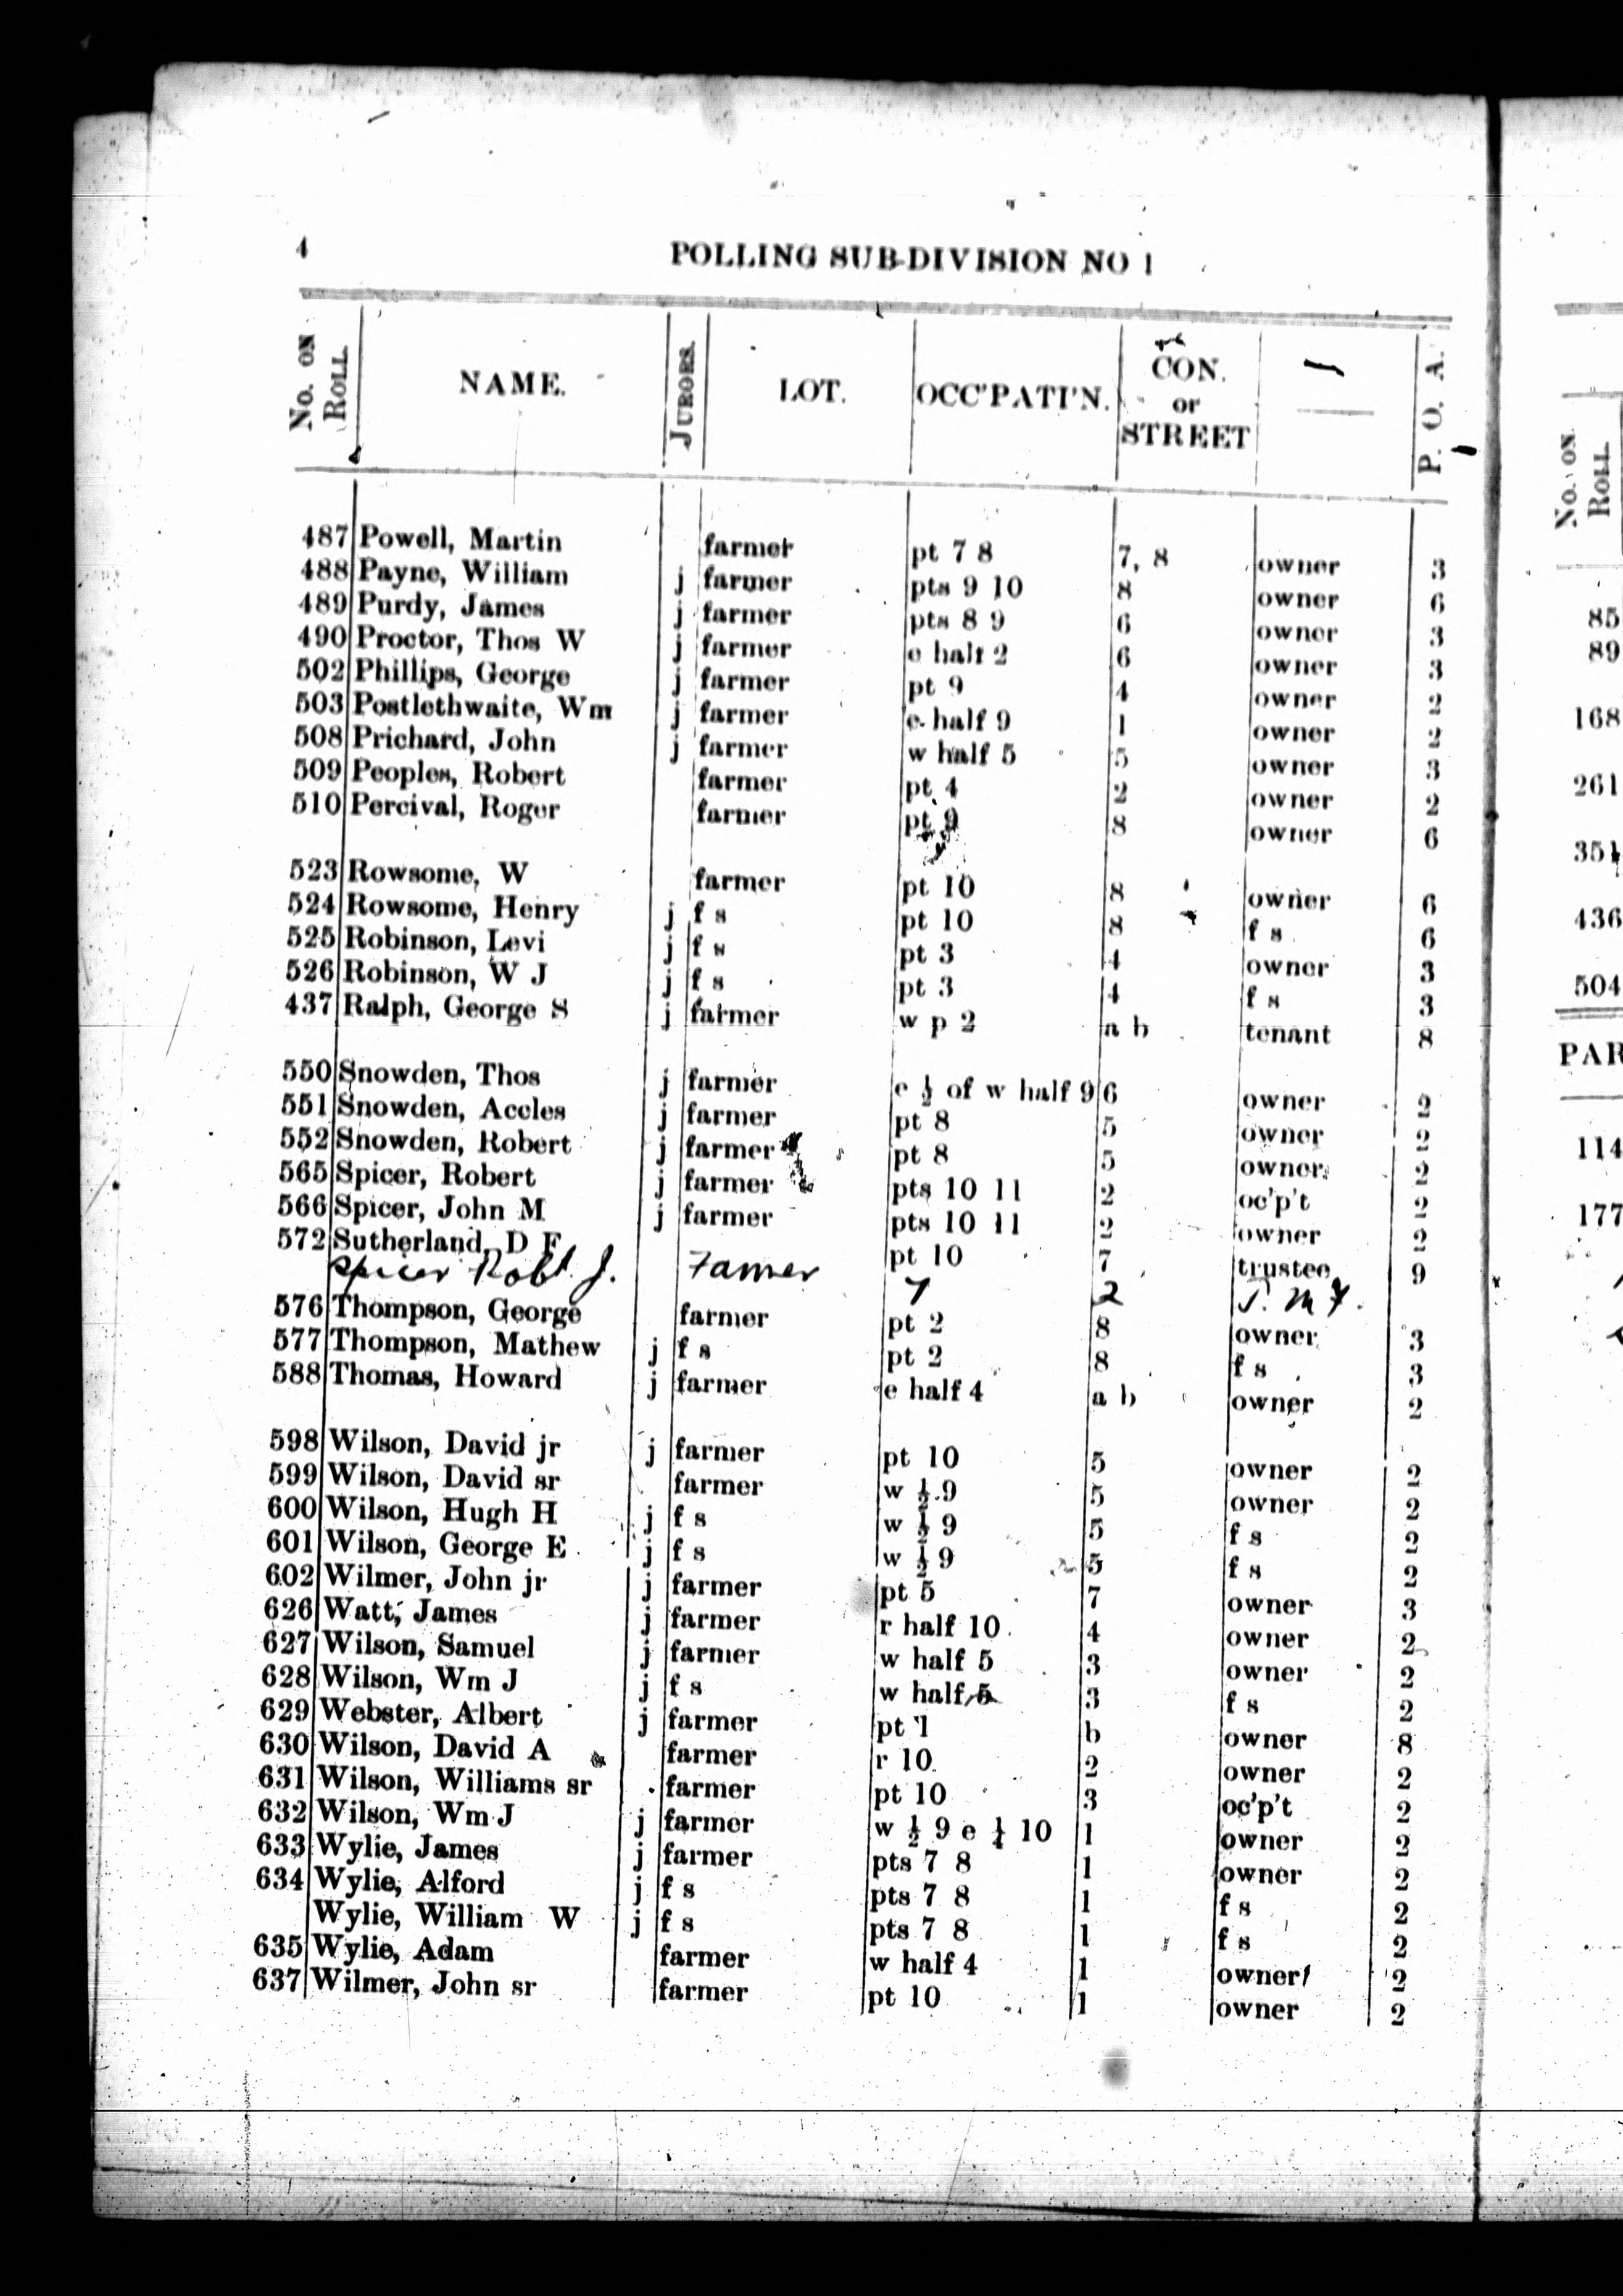 4
POLLING SUB-DIVISION NO 1
No. ON ROLL. NAME. JURORS. LOT. OCC'PATI'N. CON. or STREET P. O. A.
487 Powell, Martin farmer pt 7 8 7, 8 owner 3
488 Payne, William j farmer pts 9 10 8 owner 6
489 Purdy, James j farmer pts 8 9 6 owner 3
490 Proctor, Thos W j farmer e half 2 6 owner 3
502 Phillips, George j farmer pt 9 4 owner 2
503 Postlethwaite, Wm j farmer e half 9 1 owner 2
508 Prichard, John j farmer w half 5 5 owner 3
509 Peoples, Robert farmer pt 4 2 owner 2
510 Percival, Roger farmer pt 9 8 owner 6
523 Rowsome, W farmer pt 10 8 owner 6
524 Rowsome, Henry j f s pt 10 8 f s 6
525 Robinson, Levi j f s pt 3 4 owner 3
526 Robinson, W J j f s pt 3 4 f s 3
437 Ralph, George S j farmer w p 2 a b tenant 8
550 Snowden, Thos j farmer e ½ of w half 9 6 owner 2
551 Snowden, Accles j farmer pt 8 5 owner 2
552 Snowden, Robert j farmer pt 8 5 owner 2
565 Spicer, Robert j farmer pts 10 11 2 oc'p't 2
566 Spicer, John M j farmer pts 10 11 2 owner 2
572 Sutherland, D F pt 10 7 trustee 9
Spicer Robt. J. Famer 7 2
576 Thompson, George farmer pt 2 8 owner 3
577 Thompson, Mathew j f s pt 2 8 f s 3
588 Thomas, Howard j farmer e half 4 a b owner 2
598 Wilson, David jr j farmer pt 10 5 owner 2
599 Wilson, David sr farmer w ½ 9 5 owner 2
600 Wilson, Hugh H j f s w ½ 9 5 f s 2
601 Wilson, George E j f s w ½ 9 5 f s 2
602 Wilmer, John jr j farmer pt 5 7 owner 3
626 Watt, James j farmer r half 10 4 owner 2
627 Wilson, Samuel j farmer w half 5 3 owner 2
628 Wilson, Wm J j f s w half 5 3 f s 2
629 Webster, Albert j farmer pt 1 b owner 8
630 Wilson, David A farmer r 10 2 owner 2
631 Wilson, Williams sr farmer pt 10 3 oc'p't 2
632 Wilson, Wm J j farmer w ½ 9 e ¼ 10 1 owner 2
633 Wylie, James j farmer pts 7 8 1 owner 2
634 Wylie, Alford j f s pts 7 8 1 f s 2
Wylie, William W j f s pts 7 8 1 f s 2
635 Wylie, Adam farmer w half 4 1 owner 2
637 Wilmer, John sr farmer pt 10 1 owner 2
No. ON ROLL.
85
89
168
261
351
436
504
PAR
114
177